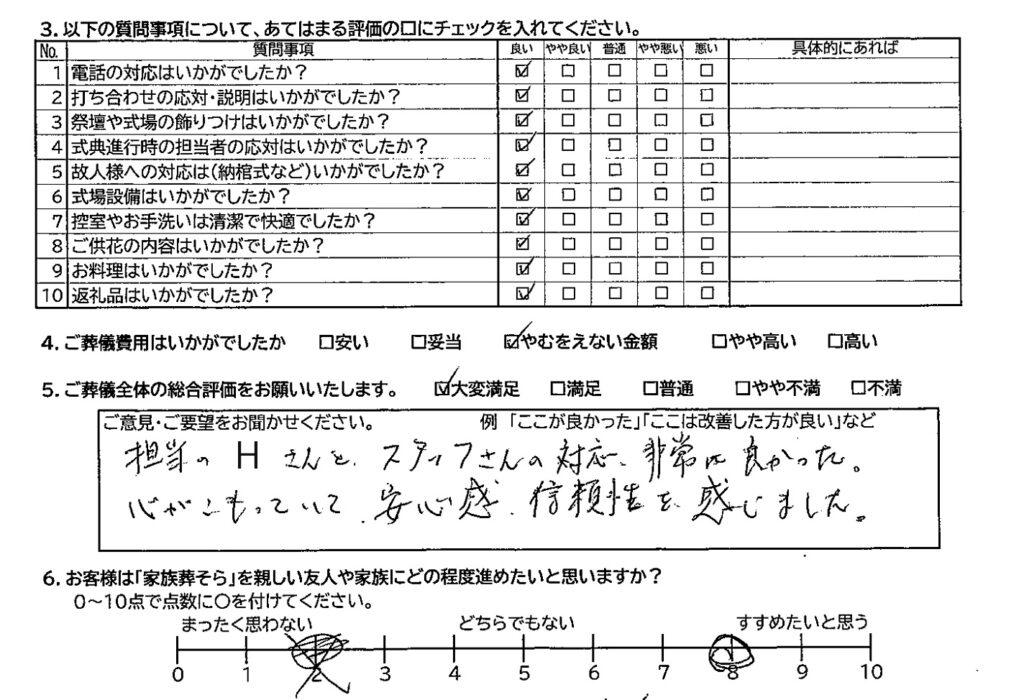 3. 以下の質問事項について、あてはまる評価の口にチェックを入れてください。
No. 質問事項 良い やや良い 普通 やや悪い 悪い 具体的にあれば
1 電話の対応はいかがでしたか? ☑ □ □ □ □
2 打ち合わせの応対・説明はいかがでしたか? ☑ □ □ □ □
3 祭壇や式場の飾りつけはいかがでしたか? ☑ □ □ □ □
4 式典進行時の担当者の応対はいかがでしたか? ☑ □ □ □ □
5 故人様への対応は(納棺式など)いかがでしたか? ☑ □ □ □ □
6 式場設備はいかがでしたか? ☑ □ □ □ □
7 控室やお手洗いは清潔で快適でしたか? ☑ □ □ □ □
8 ご供花の内容はいかがでしたか? ☑ □ □ □ □
9 お料理はいかがでしたか? ☑ □ □ □ □
10 返礼品はいかがでしたか? ☑ □ □ □ □
4. ご葬儀費用はいかがでしたか □安い □妥当 ☑やむをえない金額 □やや高い □高い
5. ご葬儀全体の総合評価をお願いいたします。 ☑大変満足 □満足 □普通 □やや不満 □不満
ご意見・ご要望をお聞かせください。 例 「ここが良かった」「ここは改善した方が良い」など
担当の H さんと、スタッフさんの対応、非常に良かった。
心がこもっていて、安心感、信頼性を感じました。
6. お客様は「家族葬そら」を親しい友人や家族にどの程度進めたいと思いますか?
0~10点で点数に〇を付けてください。
まったく思わない どちらでもない すすめたいと思う
0 1 2 3 4 5 6 7 8 9 10